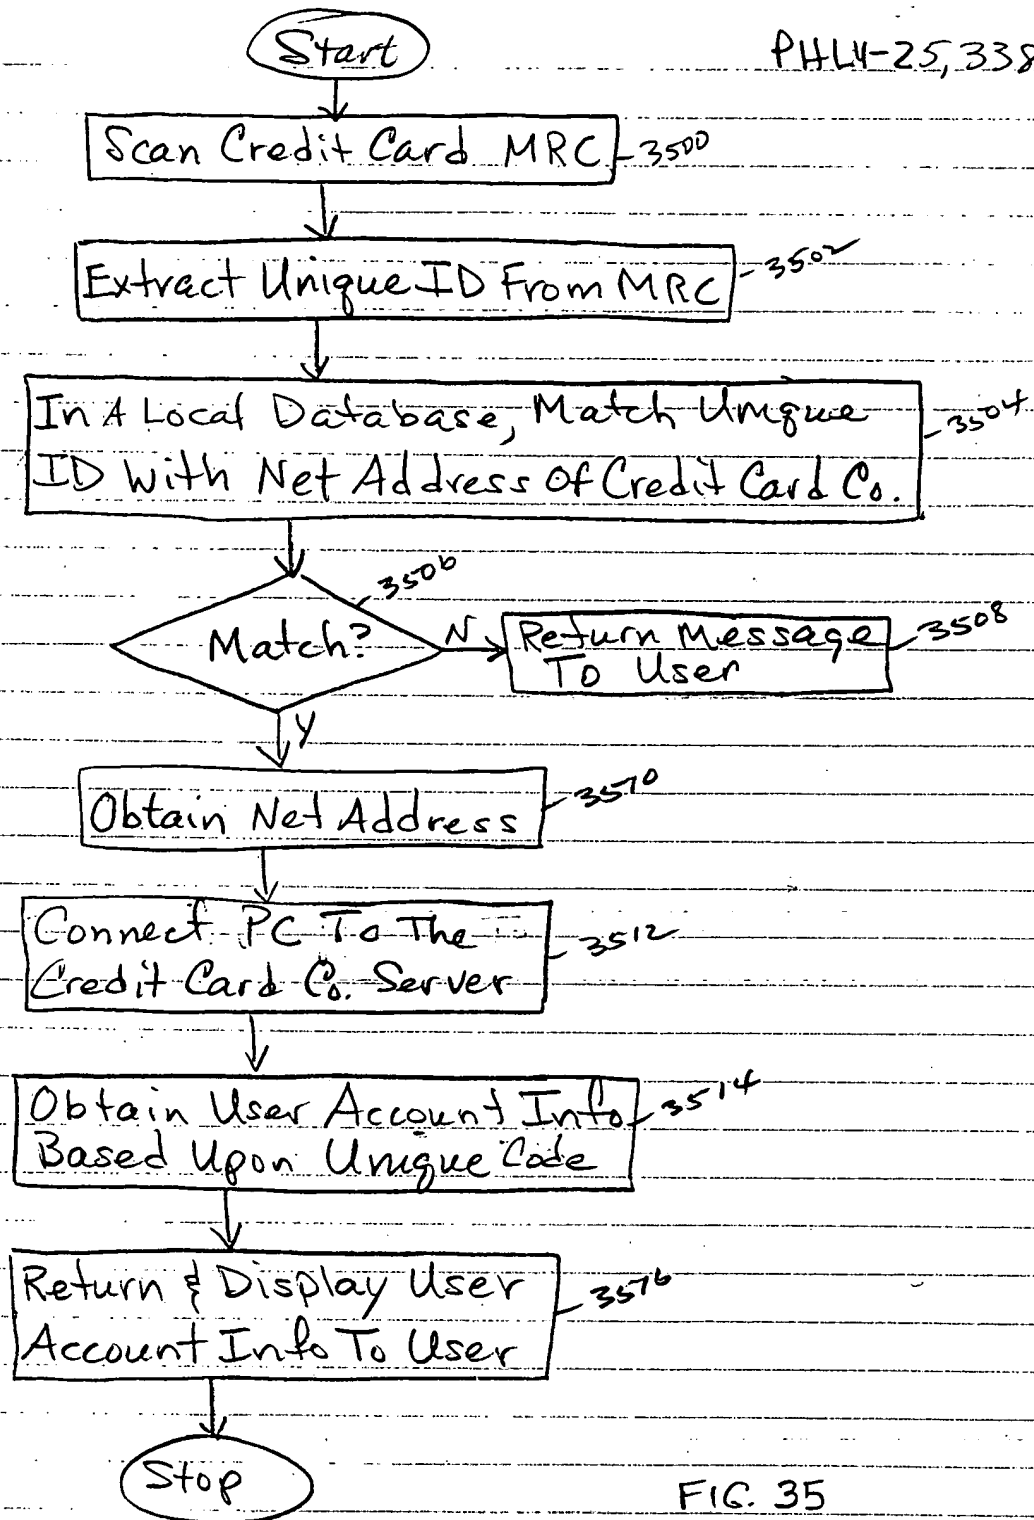 Start
PHLY-25,338
Scan Credit Card MRC
3500
Extract Unique ID From MRC
3502
In A Local Database, Match Unique
ID With Net Address Of Credit Card Co.
3504
Match?
3506
N
Return Message
To User
3508
Y
Obtain Net Address
3510
Connect PC To The
Credit Card Co. Server
3512
Obtain User Account Info
Based Upon Unique Code
3514
Return & Display User
Account Info To User
3516
Stop
FIG. 35